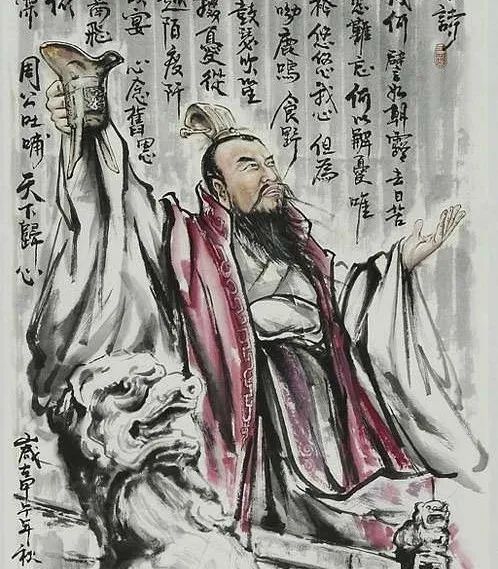 詩
何 譬如朝露去日苦
思難忘 何以解憂唯
衿悠悠我心 但為
呦鹿鳴 食野
鼓瑟吹笙
掇憂從
越陌度阡
宴 心念舊恩
南飛
深
周公吐哺 天下歸心
歲在甲午年秋